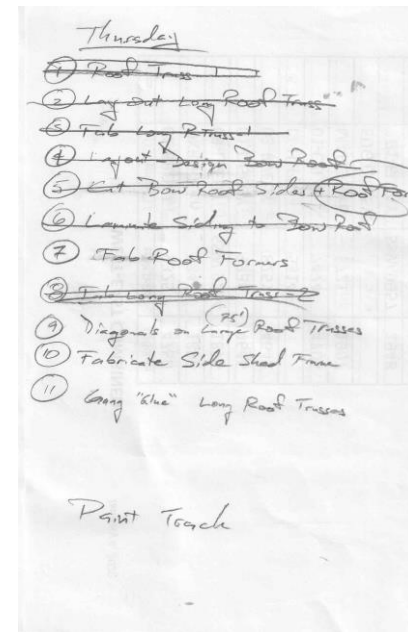 Thursday
① Roof Truss 1
② Lay out Long Roof Truss
③ Fab Long R. Truss-1
④ Layout - Design Bow Roof
⑤ Cut Bow Roof Sides + Roof For
⑥ Laminate Siding to Bow Roof
⑦ Fab Roof Formers
⑧ Fab Long Roof Truss-2
(75')
⑨ Diagonals on Large Roof Trusses
⑩ Fabricate Side Shed Frame
⑪ Gang "Glue" Long Roof Trusses
Paint Track